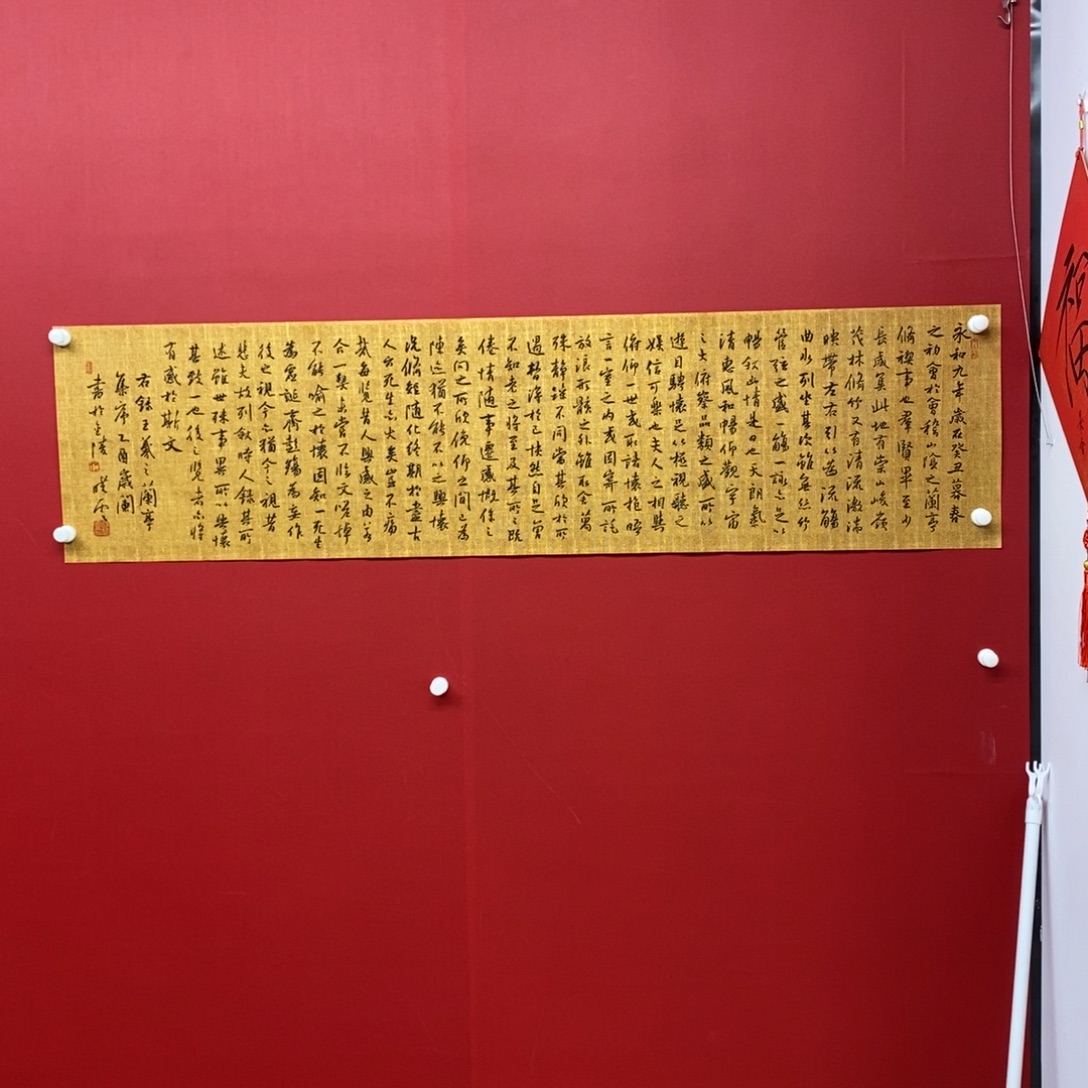 永和九年歲在癸丑暮春
之初會於會稽山陰之蘭亭
脩禊事也羣賢畢至少
長咸集此地有崇山峻嶺
茂林脩竹又有清流激湍
映帶左右引以為流觴
曲水列坐其次雖無絲竹
管弦之盛一觴一詠亦足以
暢敘幽情是日也天朗氣
清惠風和暢仰觀宇宙
之大俯察品類之盛所以
遊目騁懷足以極視聽之
娛信可樂也夫人之相與
俯仰一世或取諸懷抱晤
言一室之內或因寄所託
放浪形骸之外雖取舍萬
殊靜躁不同當其欣於所
遇暫得於己快然自足曾
不知老之將至及其所之既
倦情隨事遷感慨係之
矣向之所欣俛仰之間已為
陳迹猶不能不以之興懷
況脩短隨化終期於盡古
人云死生亦大矣豈不痛
哉每覽昔人興感之由若
合一契未嘗不臨文嗟悼
不能喻之於懷固知一死生
為虛誕齊彭殤為妄作
後之視今亦猶今之視昔
悲夫故列敘時人錄其所
述雖世殊事異所以興懷
其致一也後之覽者亦將
有感於斯文
右錄王羲之蘭亭
集序乙酉歲闌
書於金陵